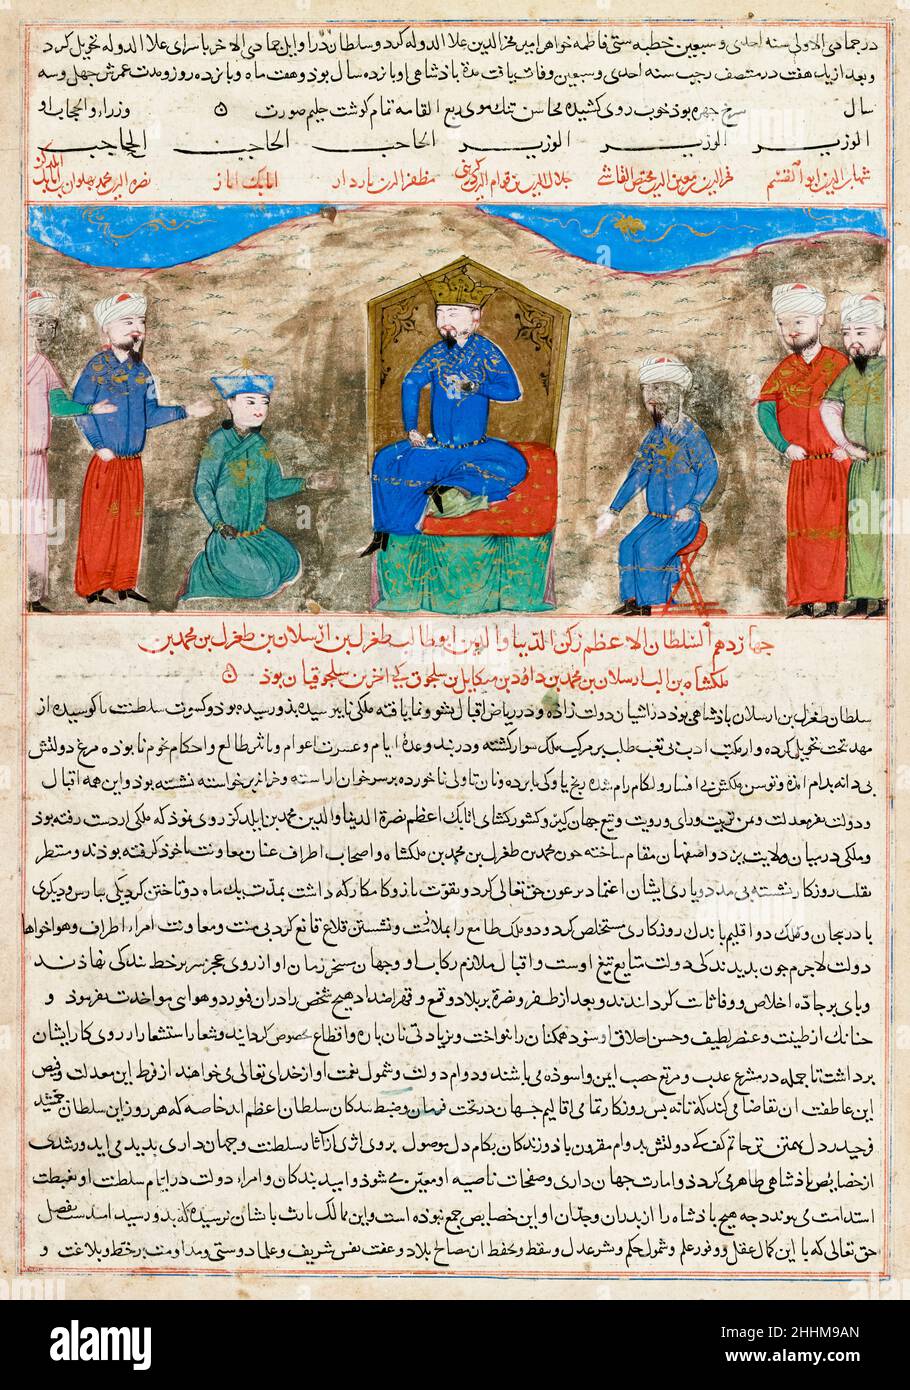 در جمادی الاولی سنه احدی و سبعین خطبه ستی فاطمه خواهر امیر فخرالدین علا الدوله کرد و سلطان در اوایل جمادی الاخر با سرای علا الدوله تحویل کرد
و بعد از یک هفت در منتصف رجب سنه احدی و سبعین وفات یافت مدة باذشاهی او بانزده سال بوذ و هفت ماه و بانزده روز و مدت عمرش جهل و سه
سال سرخ جهره بوذ خوب روی کشیده محاسن تنک موی ربع القامه تمام کوشت حلیم صورت وزراء و الحجاب او
الوزیر الوزیر الوزیر الحاجب الحاجب الحاجب
شهاب الدین ابو القسم فخر الدین بن معین الدین مختص القاشی جلال الدین بن قوام الدین مظفر الدین باردار اتابک ایاز نصرة الدین محمد بهلوان بن اتابک
جهاردهم السلطان الاعظم رکن الدنیا والدین ابو طالب طغرل بن ارسلان بن طغرل بن محمد بن
ملکشاه بن الب ارسلان بن محمد بن داود بن میکایل بن سلجوق کی اخرین سلجوقیان بوذ
سلطان طغرل بن ارسلان باذشاهی بوذ در اشیان دولت زاده و در ریاض اقبال نشو و نما یافته ملکی نابیرسیده بذو رسیده بوذ و کسوت سلطنت ناکوسیده از
مهد بتخت تحویل کرده و از مکتب ادب بی تعب طلب بر مرکب ملک سوار کشته و در بند وعدة ایام و عسرت اعوام و تاثیر طالع و احکام نجوم نابوده مرغ دولتش
بی دانه بدام امده و توسن ملکش بی افسار و لکام رام شده رنج باوکی نابرده و نان تاولی ناخورده بر سر خوان اراسته و خزاین برخواسته نشسته بوذ و این همه اقبال
و دولت بفر معدلت و یمن تربیت و رای و رویت و تیغ جهان کیر و کشورکشای اتابک اعظم نصرة الدنیا والدین محمد بن ایلدکز روی نموذ که ملکی از دست رفته بوذ
و ملکی در میان ولایت یزد و اصفهان مقام ساخته جون محمد بن طغرل بن محمد بن ملکشاه و اصحاب اطراف عنان معاونت باخوذ کرفته بوذند و منتظر
تقلب روزکار نشسته بی مدد و یاری ایشان اعتماد بر عون حق تعالی کرد و بقوت بازو کامکار که داشت بمدت یک ماه دو تاختن کرد یکی بپارس و دیکری
باذربیجان و ملک دو اقلیم باندک روزکاری مستخلص کرد و دو ملک طامع را بملازمت و نشستن قلاع قانع کرد بی منت و معاونت امراء اطراف و هواخواهان
دولت لاجرم جون بدیدند کی دولت متابع تیغ اوست و اقبال ملازم رکاب او جهان سخر زمان او از روی عجز سر بر خط بندکی نهاذند
و بای بر جاده اخلاص و وفا ثابت کردانیدند و بعد از ظفر و نصرة بر بلاد و قمع و قهر اضداد هیج شخص را دران فور و هوا بی مواخذت نفرموذ و
جنانک از طینت و عنصر لطیف و حسن اخلاق او سزد همکنان را بنواخت و بزیادتی نان باره و اقطاع مخصوص کردانید و شعار استشعار از روی کار ایشان
برداشت تا جمله در مشرع عذب و مرتع خصب ایمن و اسوده می باشند و دوام دولت و شمول نعمت او از خدای تعالی می خواهند از فرط این معدلت و فیض
این عاطفت ان تقاضا می کند که تا نه بس روزکار تمامی اقالیم جهان در تحت فرمان و ضبط بندکان سلطان اعظم اید خاصه که هر روز این سلطان جمشید
فر حیدر دل بهمتن تن حاتم کف که دولتش بدوام مقرون باذ و زندکان بکام دل موصول بروی اثری از آثار سلطنت و جهان داری بدید می اید و رشدک
از خصایص باذشاهی ظاهر می کردد و امارت جهان داری و صفحات ناصیه او معین می شوذ و امید بندکان و امراء دولت در ایام سلطنت او بغبطت
استدامت می بوندد جه هیج باذشاه را از بدران و جدان او این خصایص جمع نبوذه است و این ممالک بارث باشان نرسیده که بدو رسید امیدست بفضل
حق تعالی که با این کمال عقل و وفور علم و شمول حکم و نشر عدل و سقط و تحفظ ان مصالح بلاد و عفت نفس شریف و علما دوستی و مداومت بر خط و بلاغت و
alamy
Image ID: 2HHM9AN
www.alamy.com